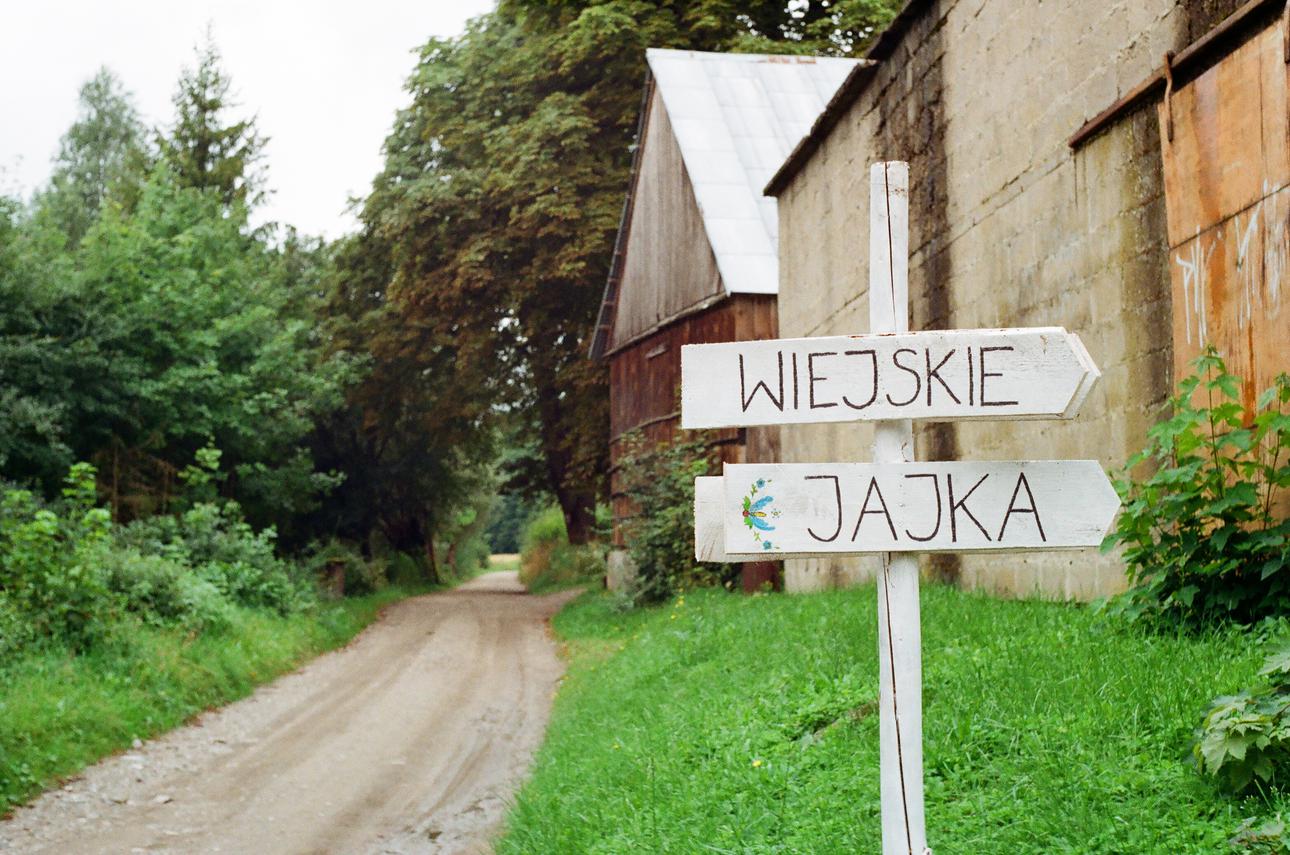 WIEJSKIE
JAJKA